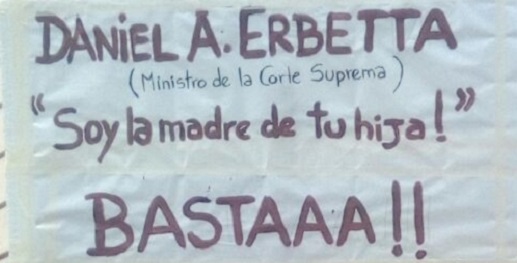 DANiEL A. ERBETTA
(Ministro de la Corte Suprema)
"Soy la madre de tu hija!"
BASTAAA!!